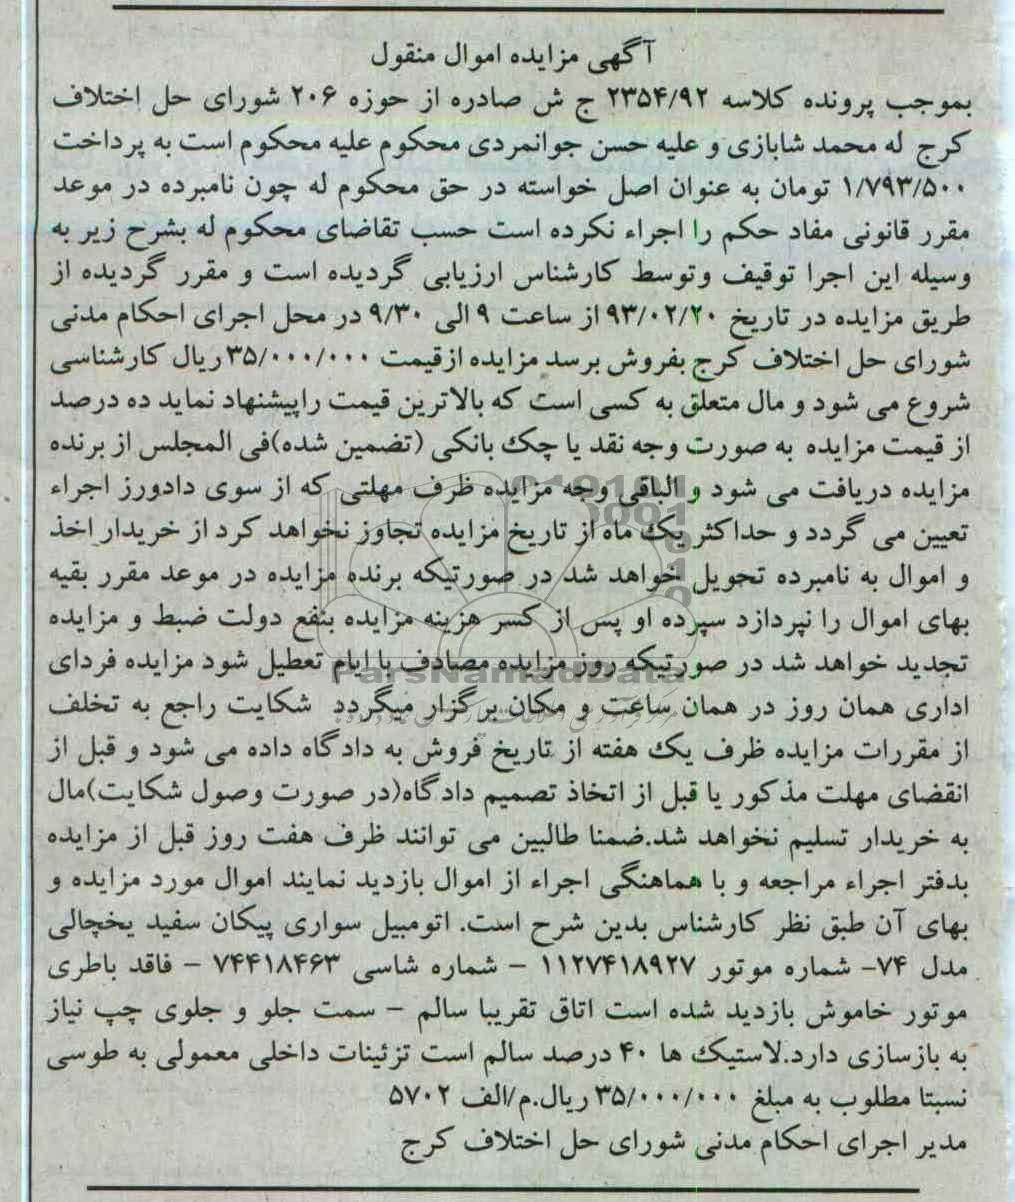 آگهی مزایده اموال منقول
بموجب پرونده کلاسه ۲۳۵۴/۹۲ ج ش صادره از حوزه ۲۰۶ شورای حل اختلاف
کرج له محمد شابازی و علیه حسن جوانمردی محکوم علیه محکوم است به پرداخت
۱/۷۹۳/۵۰۰ تومان به عنوان اصل خواسته در حق محکوم له چون نامبرده در موعد
مقرر قانونی مفاد حکم را اجراء نکرده است حسب تقاضای محکوم له بشرح زیر به
وسیله این اجرا توقیف وتوسط کارشناس ارزیابی گردیده است و مقرر گردیده از
طریق مزایده در تاریخ ۹۳/۰۲/۲۰ از ساعت ۹ الی ۹/۳۰ در محل اجرای احکام مدنی
شورای حل اختلاف کرج بفروش برسد مزایده ازقیمت ۳۵/۰۰۰/۰۰۰ ریال کارشناسی
شروع می شود و مال متعلق به کسی است که بالاترین قیمت راپیشنهاد نماید ده درصد
از قیمت مزایده به صورت وجه نقد یا چک بانکی (تضمین شده)فی المجلس از برنده
مزایده دریافت می شود و الباقی وجه مزایده ظرف مهلتی که از سوی دادورز اجراء
تعیین می گردد و حداکثر یک ماه از تاریخ مزایده تجاوز نخواهد کرد از خریدار اخذ
و اموال به نامبرده تحویل خواهد شد در صورتیکه برنده مزایده در موعد مقرر بقیه
بهای اموال را نپردازد سپرده او پس از کسر هزینه مزایده بنفع دولت ضبط و مزایده
تجدید خواهد شد در صورتیکه روز مزایده مصادف با ایام تعطیل شود مزایده فردای
ParsNamadData
اداری همان روز در همان ساعت و مکان برگزار میگردد شکایت راجع به تخلف
از مقررات مزایده ظرف یک هفته از تاریخ فروش به دادگاه داده می شود و قبل از
انقضای مهلت مذکور یا قبل از اتخاذ تصمیم دادگاه(در صورت وصول شکایت)مال
به خریدار تسلیم نخواهد شد.ضمنا طالبین می توانند ظرف هفت روز قبل از مزایده
بدفتر اجراء مراجعه و با هماهنگی اجراء از اموال بازدید نمایند اموال مورد مزایده و
بهای آن طبق نظر کارشناس بدین شرح است. اتومبیل سواری پیکان سفید یخچالی
مدل ۷۴- شماره موتور ۱۱۲۷۴۱۸۹۲۷ - شماره شاسی ۷۴۴۱۸۴۶۳ - فاقد باطری
موتور خاموش بازدید شده است اتاق تقریبا سالم - سمت جلو و جلوی چپ نیاز
به بازسازی دارد.لاستیک ها ۴۰ درصد سالم است تزئینات داخلی معمولی به طوسی
نسبتا مطلوب به مبلغ ۳۵/۰۰۰/۰۰۰ ریال.م/الف ۵۷۰۲
مدیر اجرای احکام مدنی شورای حل اختلاف کرج